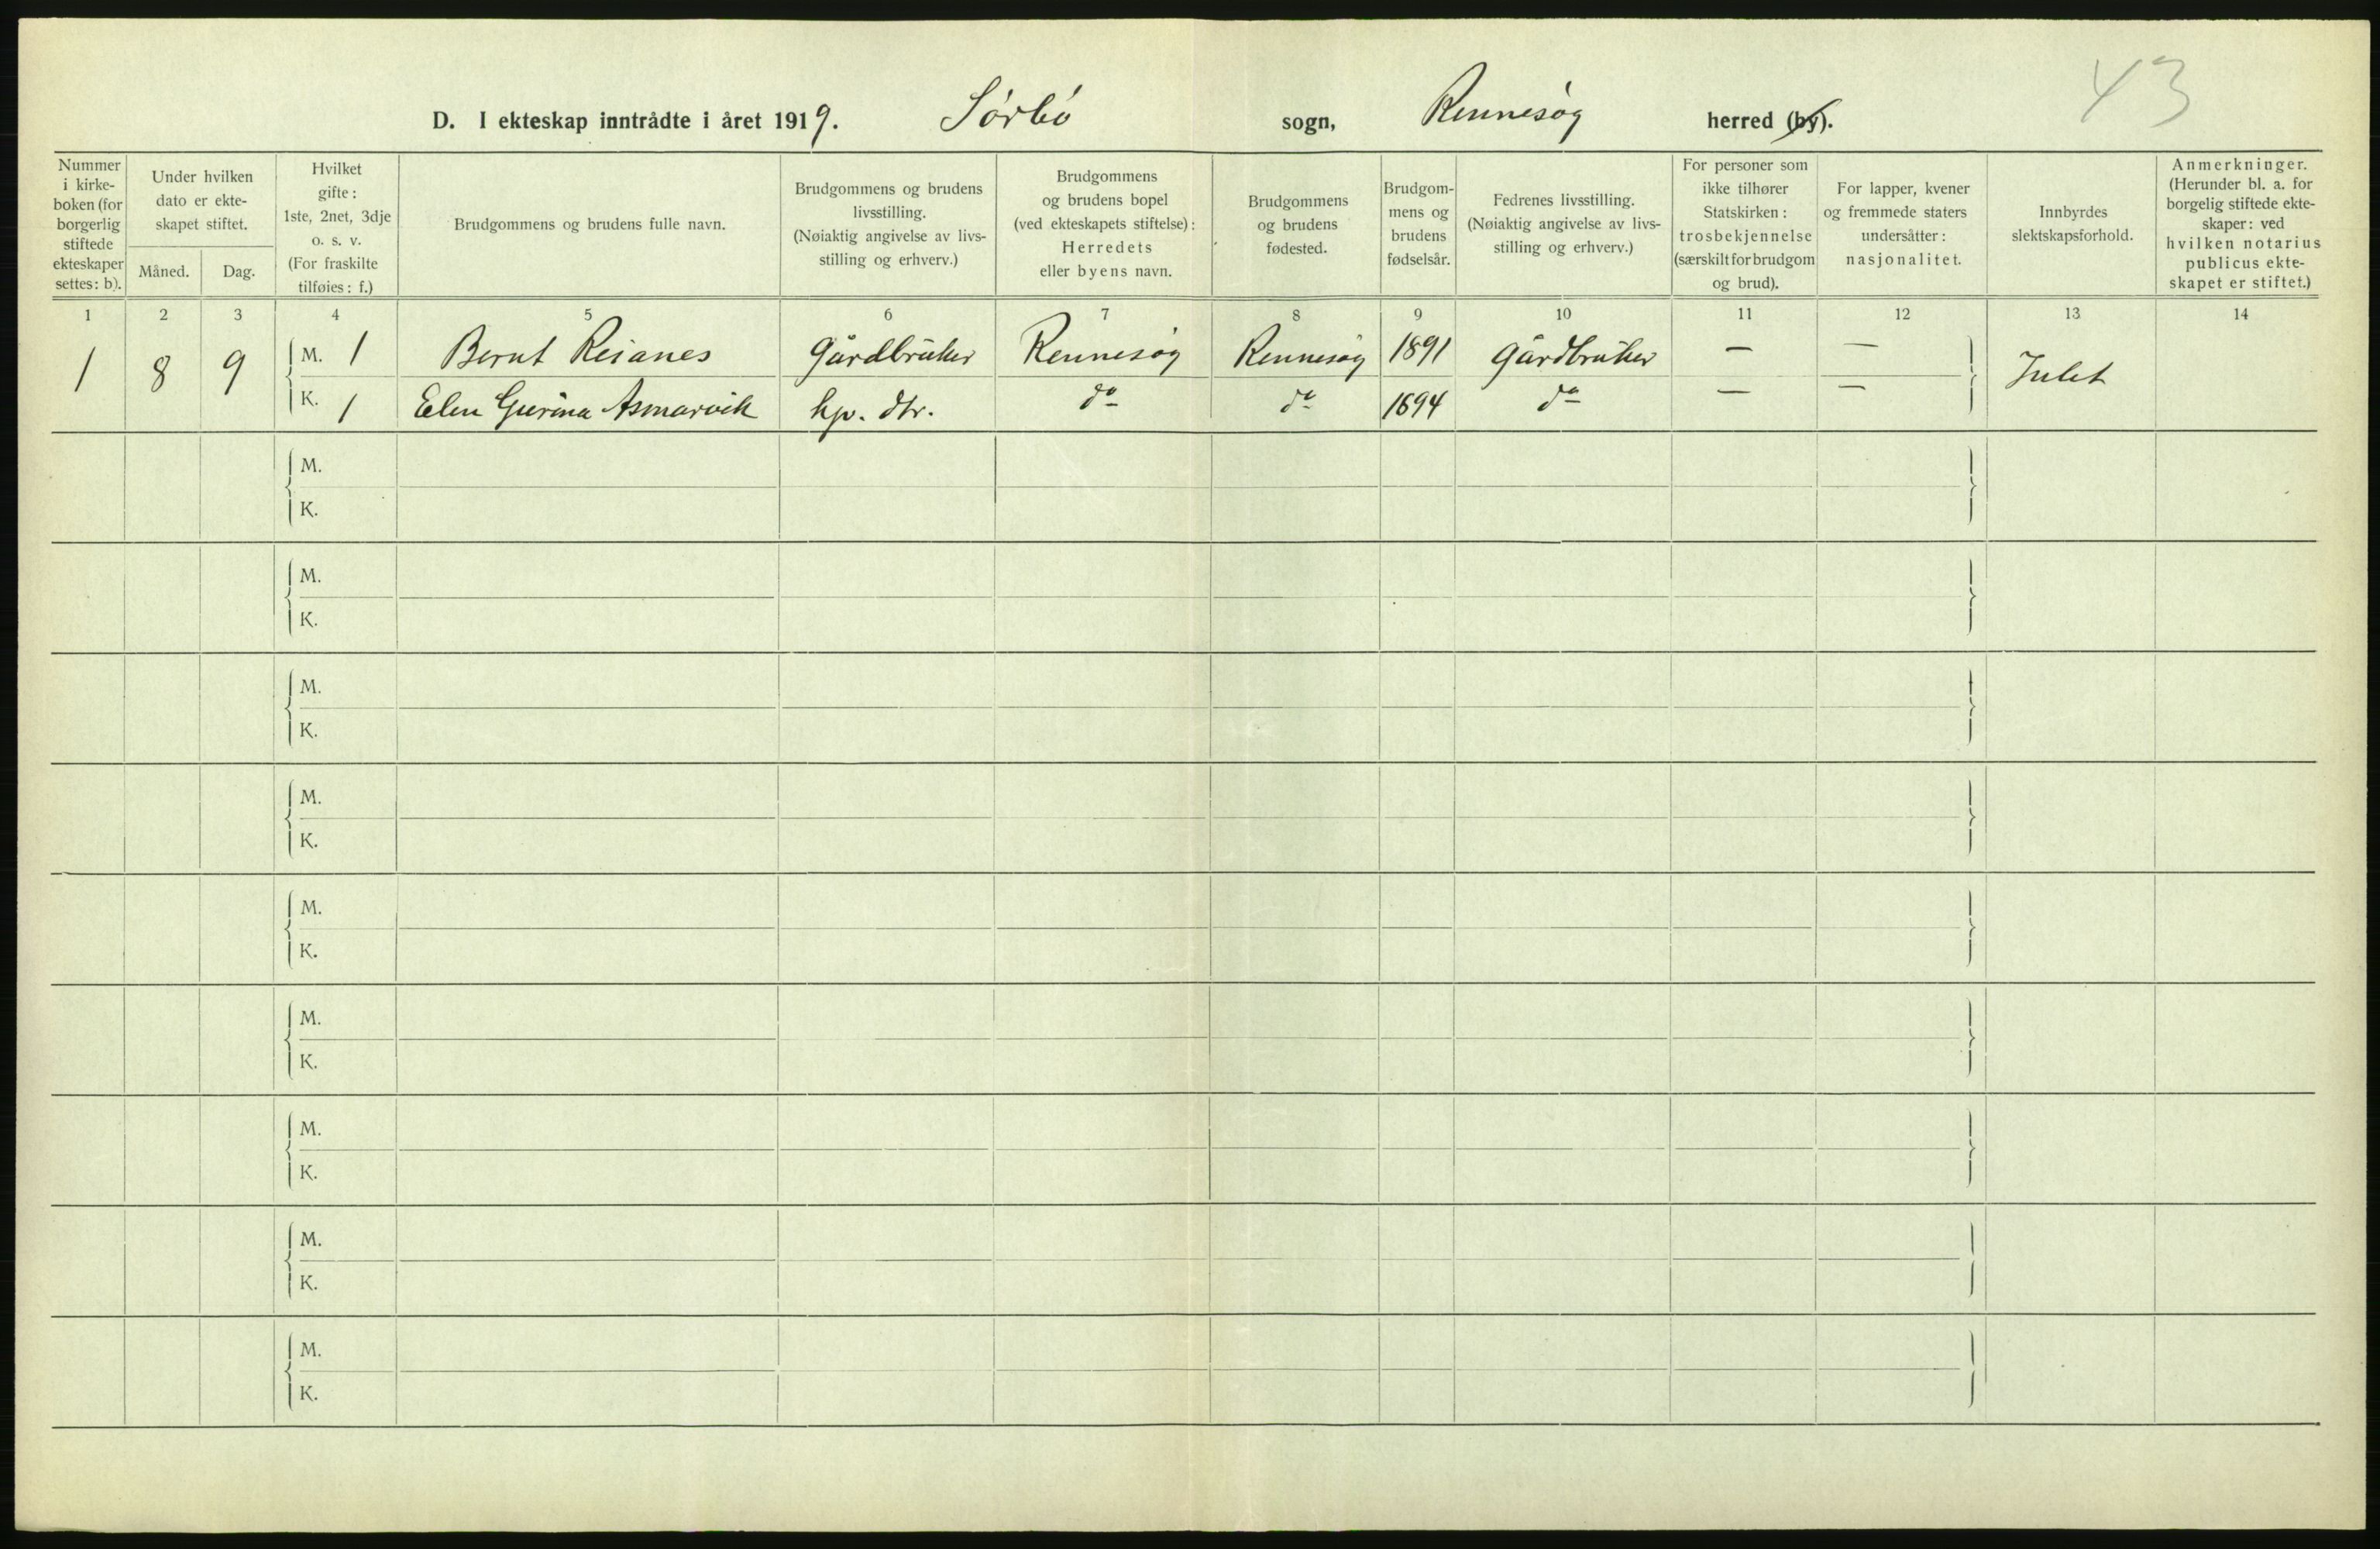 43
D. I ekteskap inntrådte i året 1919. Sørbø sogn, Rennesøy herred (by).
Nummer i kirke- boken (for borgerlig stiftede ekteskaper settes: b).
Under hvilken dato er ekte- skapet stiftet.
Måned. Dag.
Hvilket gifte: 1ste, 2net, 3dje o. s. v. (For fraskilte tilføies: f.)
Brudgommens og brudens fulle navn.
Brudgommens og brudens livsstilling. (Nøiaktig angivelse av livs- stilling og erhverv.)
Brudgommens og brudens bopel (ved ekteskapets stiftelse): Herredets eller byens navn.
Brudgommens og brudens fødested.
Brudgom- mens og brudens fødselsår.
Fedrenes livsstilling. (Nøiaktig angivelse av livs- stilling og erhverv.)
For personer som ikke tilhører Statskirken: trosbekjennelse (særskilt for brudgom og brud).
For lapper, kvener og fremmede staters undersåtter: nasjonalitet.
Innbyrdes slektskapsforhold.
Anmerkninger. (Herunder bl. a. for borgelig stiftede ekte- skaper: ved hvilken notarius publicus ekte- skapet er stiftet.)
1 2 3 4 5 6 7 8 9 10 11 12 13 14
1 8 9 M. 1 Bernt Reianes Gårdbruker Rennesøy Rennesøy 1891 Gårdbruker — — Intet
K. 1 Elen Gurina Asmarvik hp. dtr. do do 1894 do — —
M.
K.
M.
K.
M.
K.
M.
K.
M.
K.
M.
K.
M.
K.
M.
K.
M.
K.